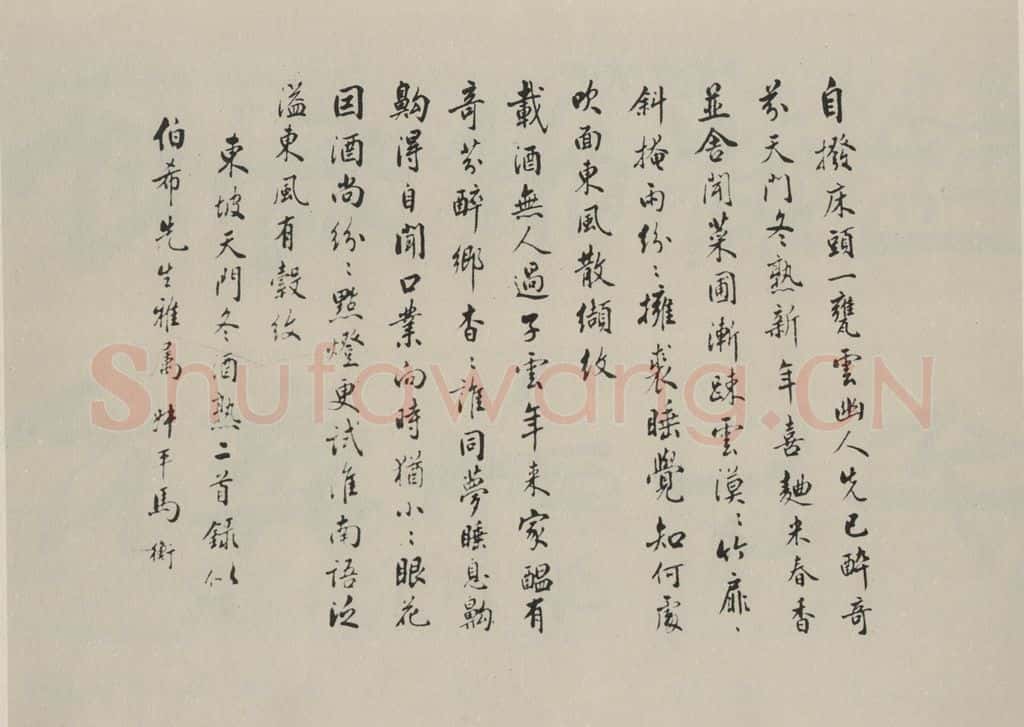 自撥床頭一甕雲幽人先已醉奇
芬天門冬熟新年喜麯米春香
並舍聞菜圃漸疎雲漠〻竹扉、
斜掩雨紛〻擁裘睡覺知何處
吹面東風散纈紋
載酒無人過子雲年来家醖有
奇芬醉鄉杳〻誰同夢睡息齁
齁得自聞口業向時猶小〻眼花
囙酒尚紛〻點燈更試淮南語泛
溢東風有縠紋
東坡天門冬酒熟二首録似
伯希先生雅属 叔平馬衡
Shufawang.CN